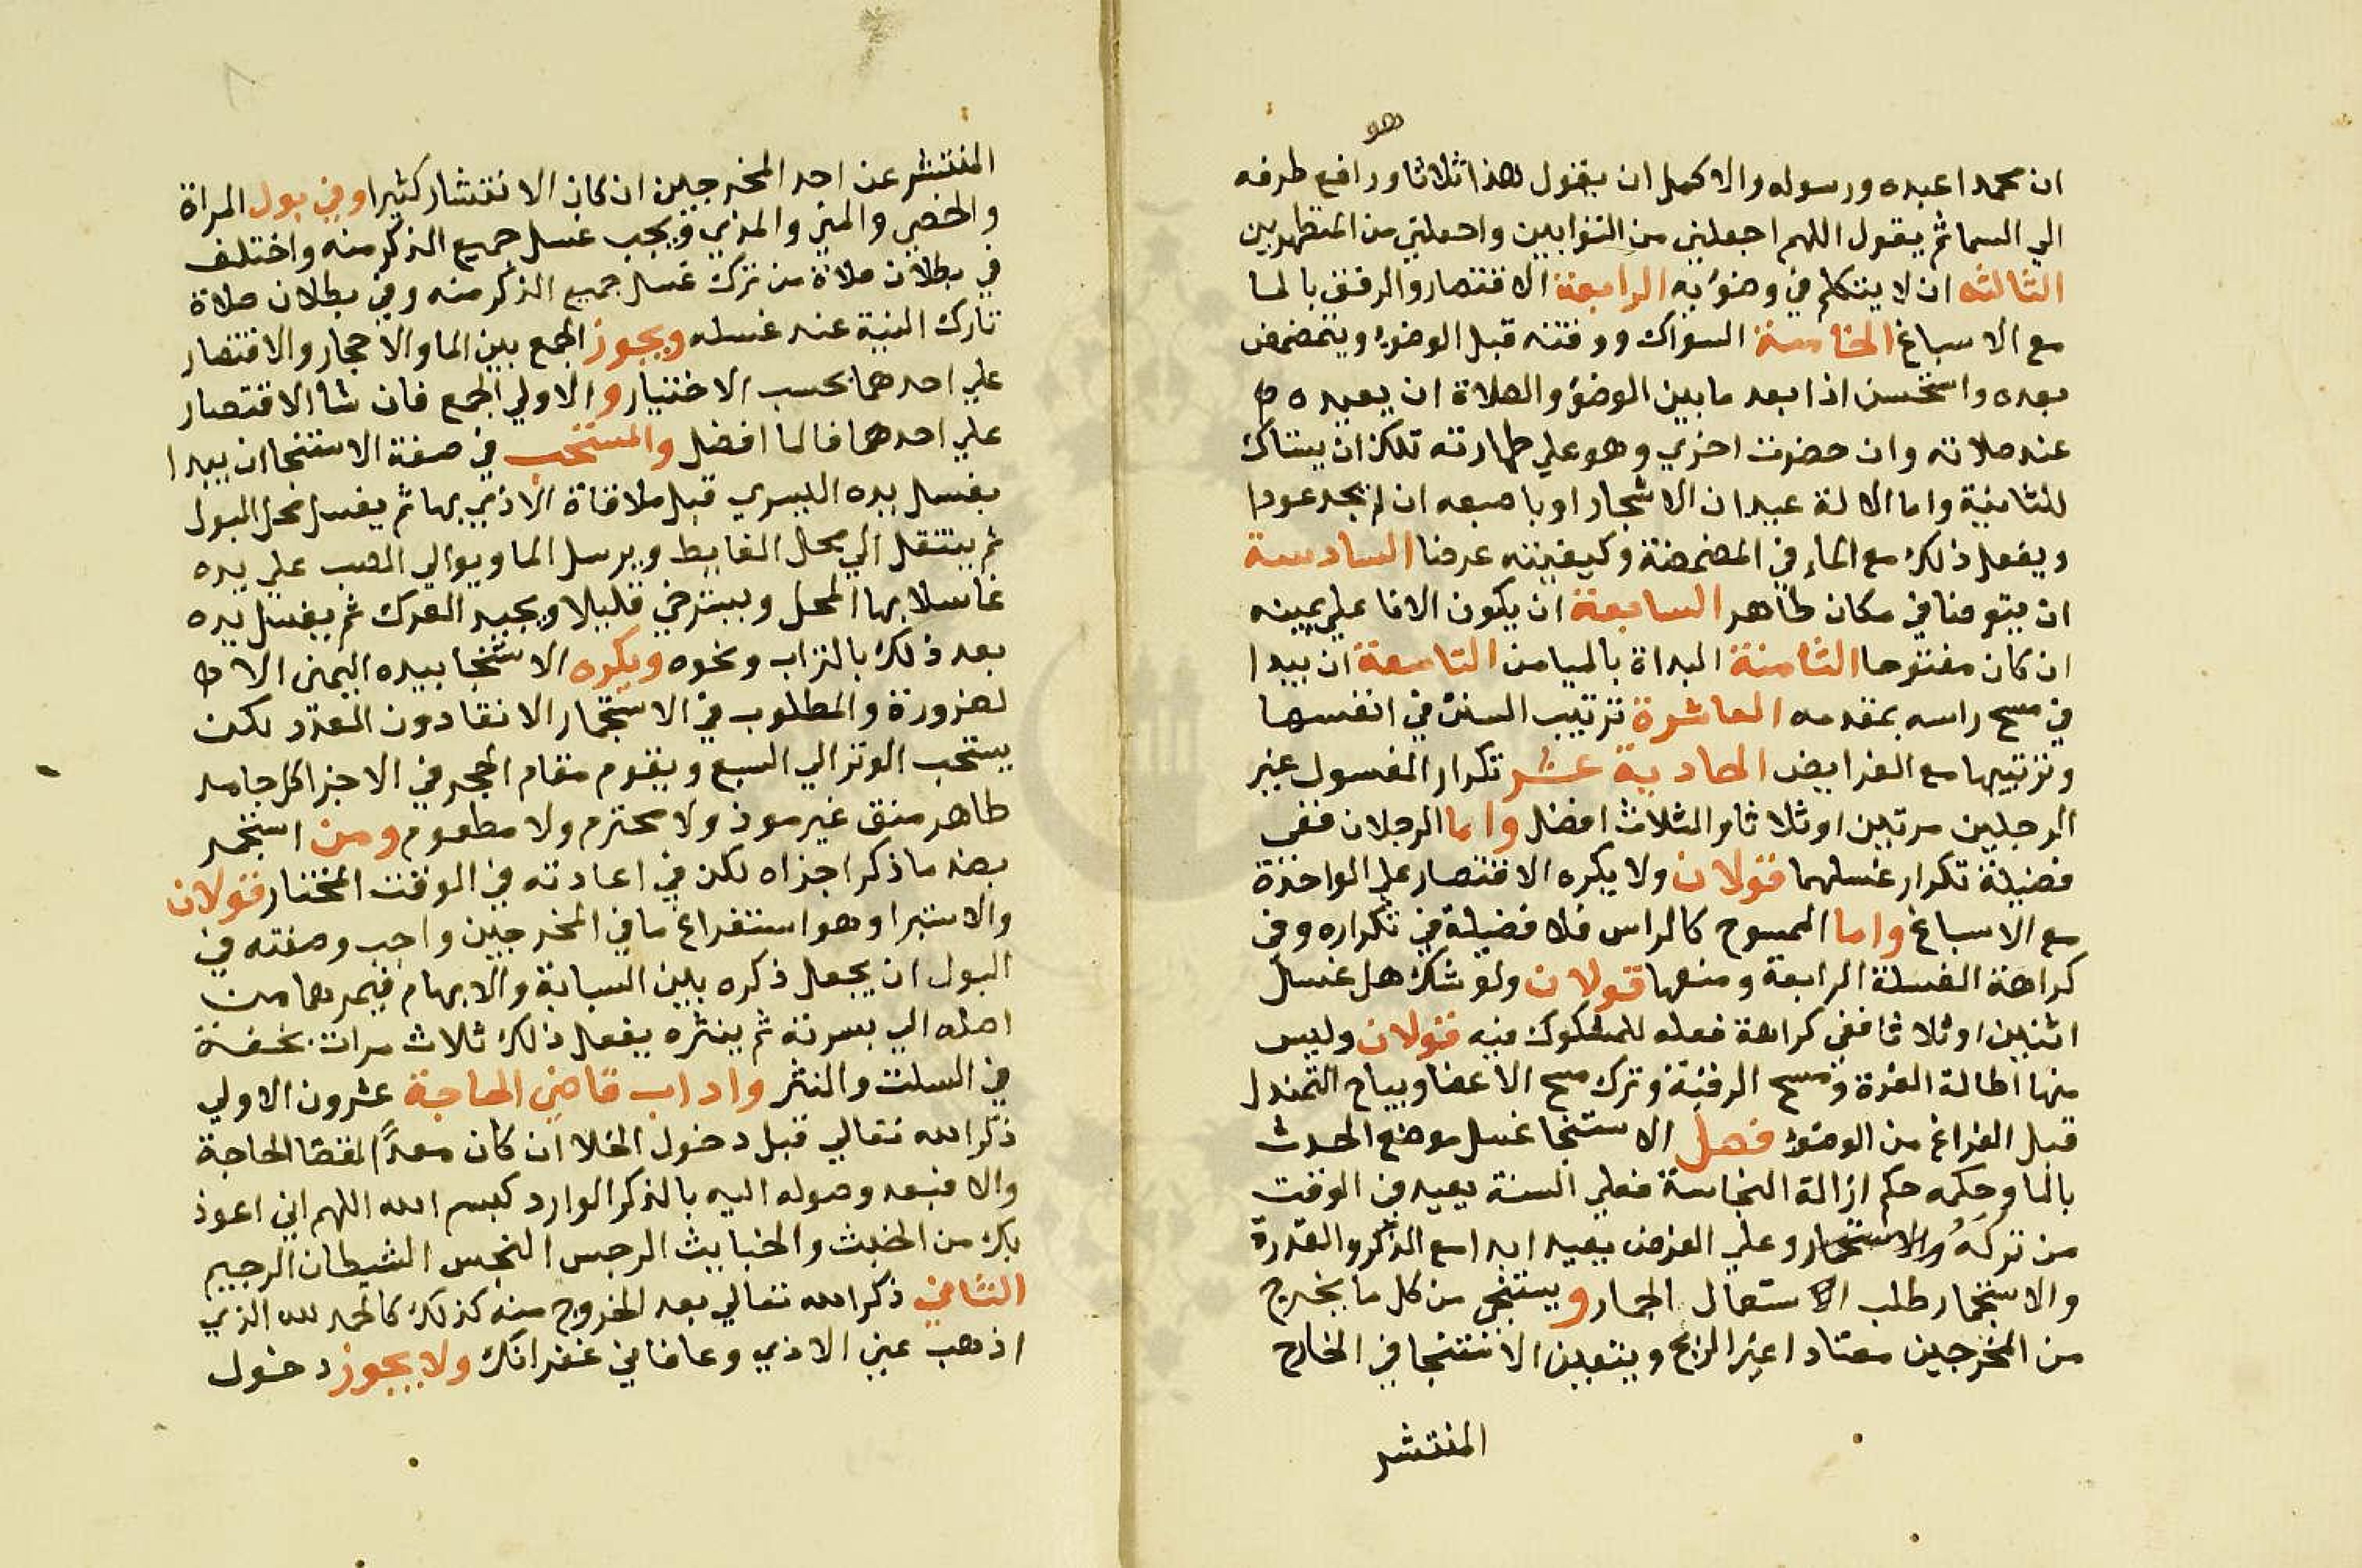 هو
ان محمدا عبده ورسوله والاكمل ان يقول هذا ثلاثا ورافع طرفه
الي السما ثم يقول اللهم اجعلني من التوابين واجعلني من المتطهرين
الثالثه ان لا يتكلم في وضوئه الرابعة الاقتصار والرفق بالما
مع الاسباغ الخامسة السواك ووقته قبل الوضوء ويتمضمض
بعده واستحسن اذا بعد ما بين الوضوء والصلاة ان يعيده
عند صلاته وان حضرت اخري وهو علي طهارته تلك ان يستاك
للثانية واما الالة عيدان الاشجار او باصبعه ان لم يجد عودا
ويفعل ذلك مع الماء في المضمضة وكيفيته عرضا السادسة
ان يتوضا في مكان طاهر السابعة ان يكون الانا علي يمينه
ان كان مفتوحا الثامنة البداة بالميامن التاسعة ان يبدا
في مسح راسه بمقدمه العاشرة ترتيب السنن في انفسها
وترتيبها مع الفرايض الحادية عشر تكرار المغسول غير
الرجلين مرتين او ثلاثا والثلاث افضل واما الرجلان ففي
فضيلة تكرار غسلهما قولان ولا يكره الاقتصار علي الواحدة
مع الاسباغ واما الممسوح كالراس فلا فضيلة في تكراره وفي
كراهة الغسلة الرابعة ومنعها قولان ولو شك هل غسل
اثنين او ثلاثا ففي كراهة فعله للمشكوك فيه قولان وليس
منها اطالة الغرة ومسح الرقبة وترك مسح الاعضا ويباح التمندل
قبل الفراغ من الوضوء فصل الاستنجا غسل موضع الحدث
بالما وحكمه حكم ازالة النجاسة فعلي السنة يعيد في الوقت
من تركه والاستجمار وعلي الفرض يعيد ابدا مع الذكر والقدرة
والاستجمار طلب الاستعمال الجمار ويستنجي من كل ما يخرج
من المخرجين معتادا غير الريح ويتعين الاستنجا في الخارج
المنتشر
المنتشر عن احد المخرجين ان كان الانتشار كثيرا وفي بول المراة
والخصي والمني والمذي ويجب غسل جميع الذكر منه واختلف
في بطلان صلاة من ترك غسل جميع الذكر منه وفي بطلان صلاة
تارك النية عند غسله ويجوز الجمع بين الما والاحجار والاقتصار
علي احدهما بحسب الاختيار والاولي الجمع فان شا الاقتصار
علي احدهما فالما افضل والمستحب في صفة الاستنجا ان يبدا
بغسل يده اليسري قبل ملاقاة الاذي بها ثم يغسل محل البول
ثم ينتقل الي محل الغايط ويرسل الما ويوالي الصب علي يده
غاسلا بها المحل ويسترخي قليلا ويجيد العرك ثم يغسل يده
بعد ذلك بالتراب ونحوه ويكره الاستنجا بيده اليمني الا
لضرورة والمطلوب في الاستجمار الانقا دون العدد لكن
يستحب الوتر الي السبع ويقوم مقام الحجر في الاجزا كل جامد
طاهر منق غير موذ ولا محترم ولا مطعوم ومن استجمر
بضد ما ذكر اجزاه لكن في اعادته في الوقت المختار قولان
والاستبرا وهو استفراغ ما في المخرجين واجب وصفته في
البول ان يجعل ذكره بين السبابة والابهام فيمرهما من
اصله الي بسرته ثم ينثره يفعل ذلك ثلاث مرات بخفة
في السلت والنثر واداب قاضي الحاجة عشرون الاولي
ذكر الله تعالي قبل دخول الخلا ان كان معدا لقضا الحاجة
والا فبعد وصوله اليه بالذكر الوارد كبسم الله اللهم اني اعوذ
بك من الخبث والخبايث الرجس النجس الشيطان الرجيم
الثاني ذكر الله تعالي بعد الخروج منه كذلك كالحمد لله الذي
اذهب عني الاذي وعافاني غفرانك ولا يجوز دخول